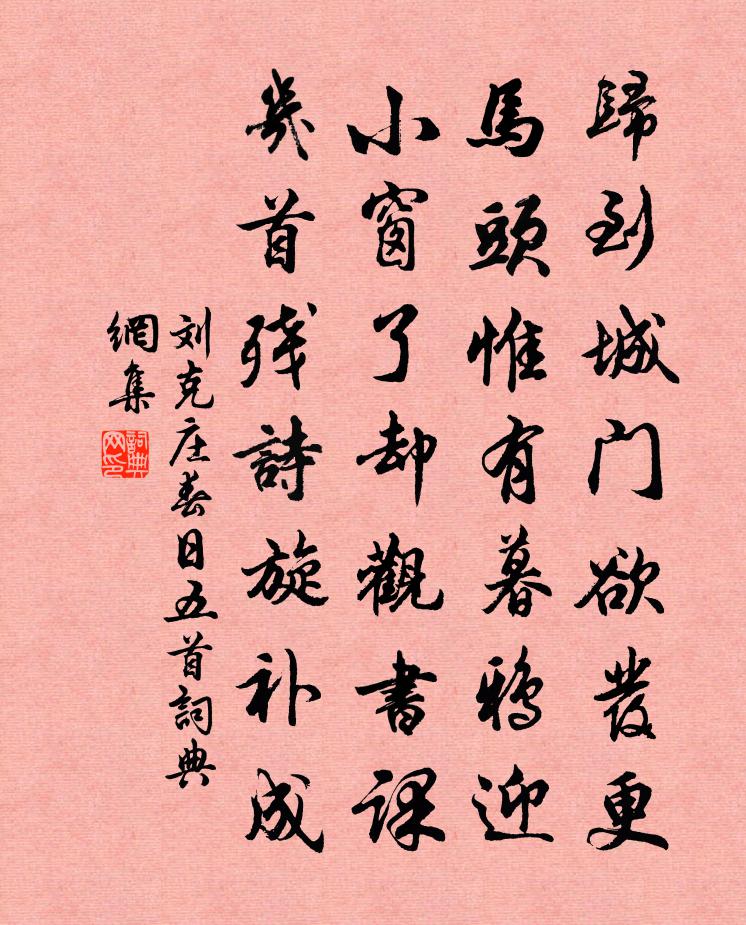 歸到城门欲發更
馬頭惟有暮鴉迎
小窗了却觀書課
幾首残詩旋补成
刘克庄春日五首詞典
網集
詞典
网印